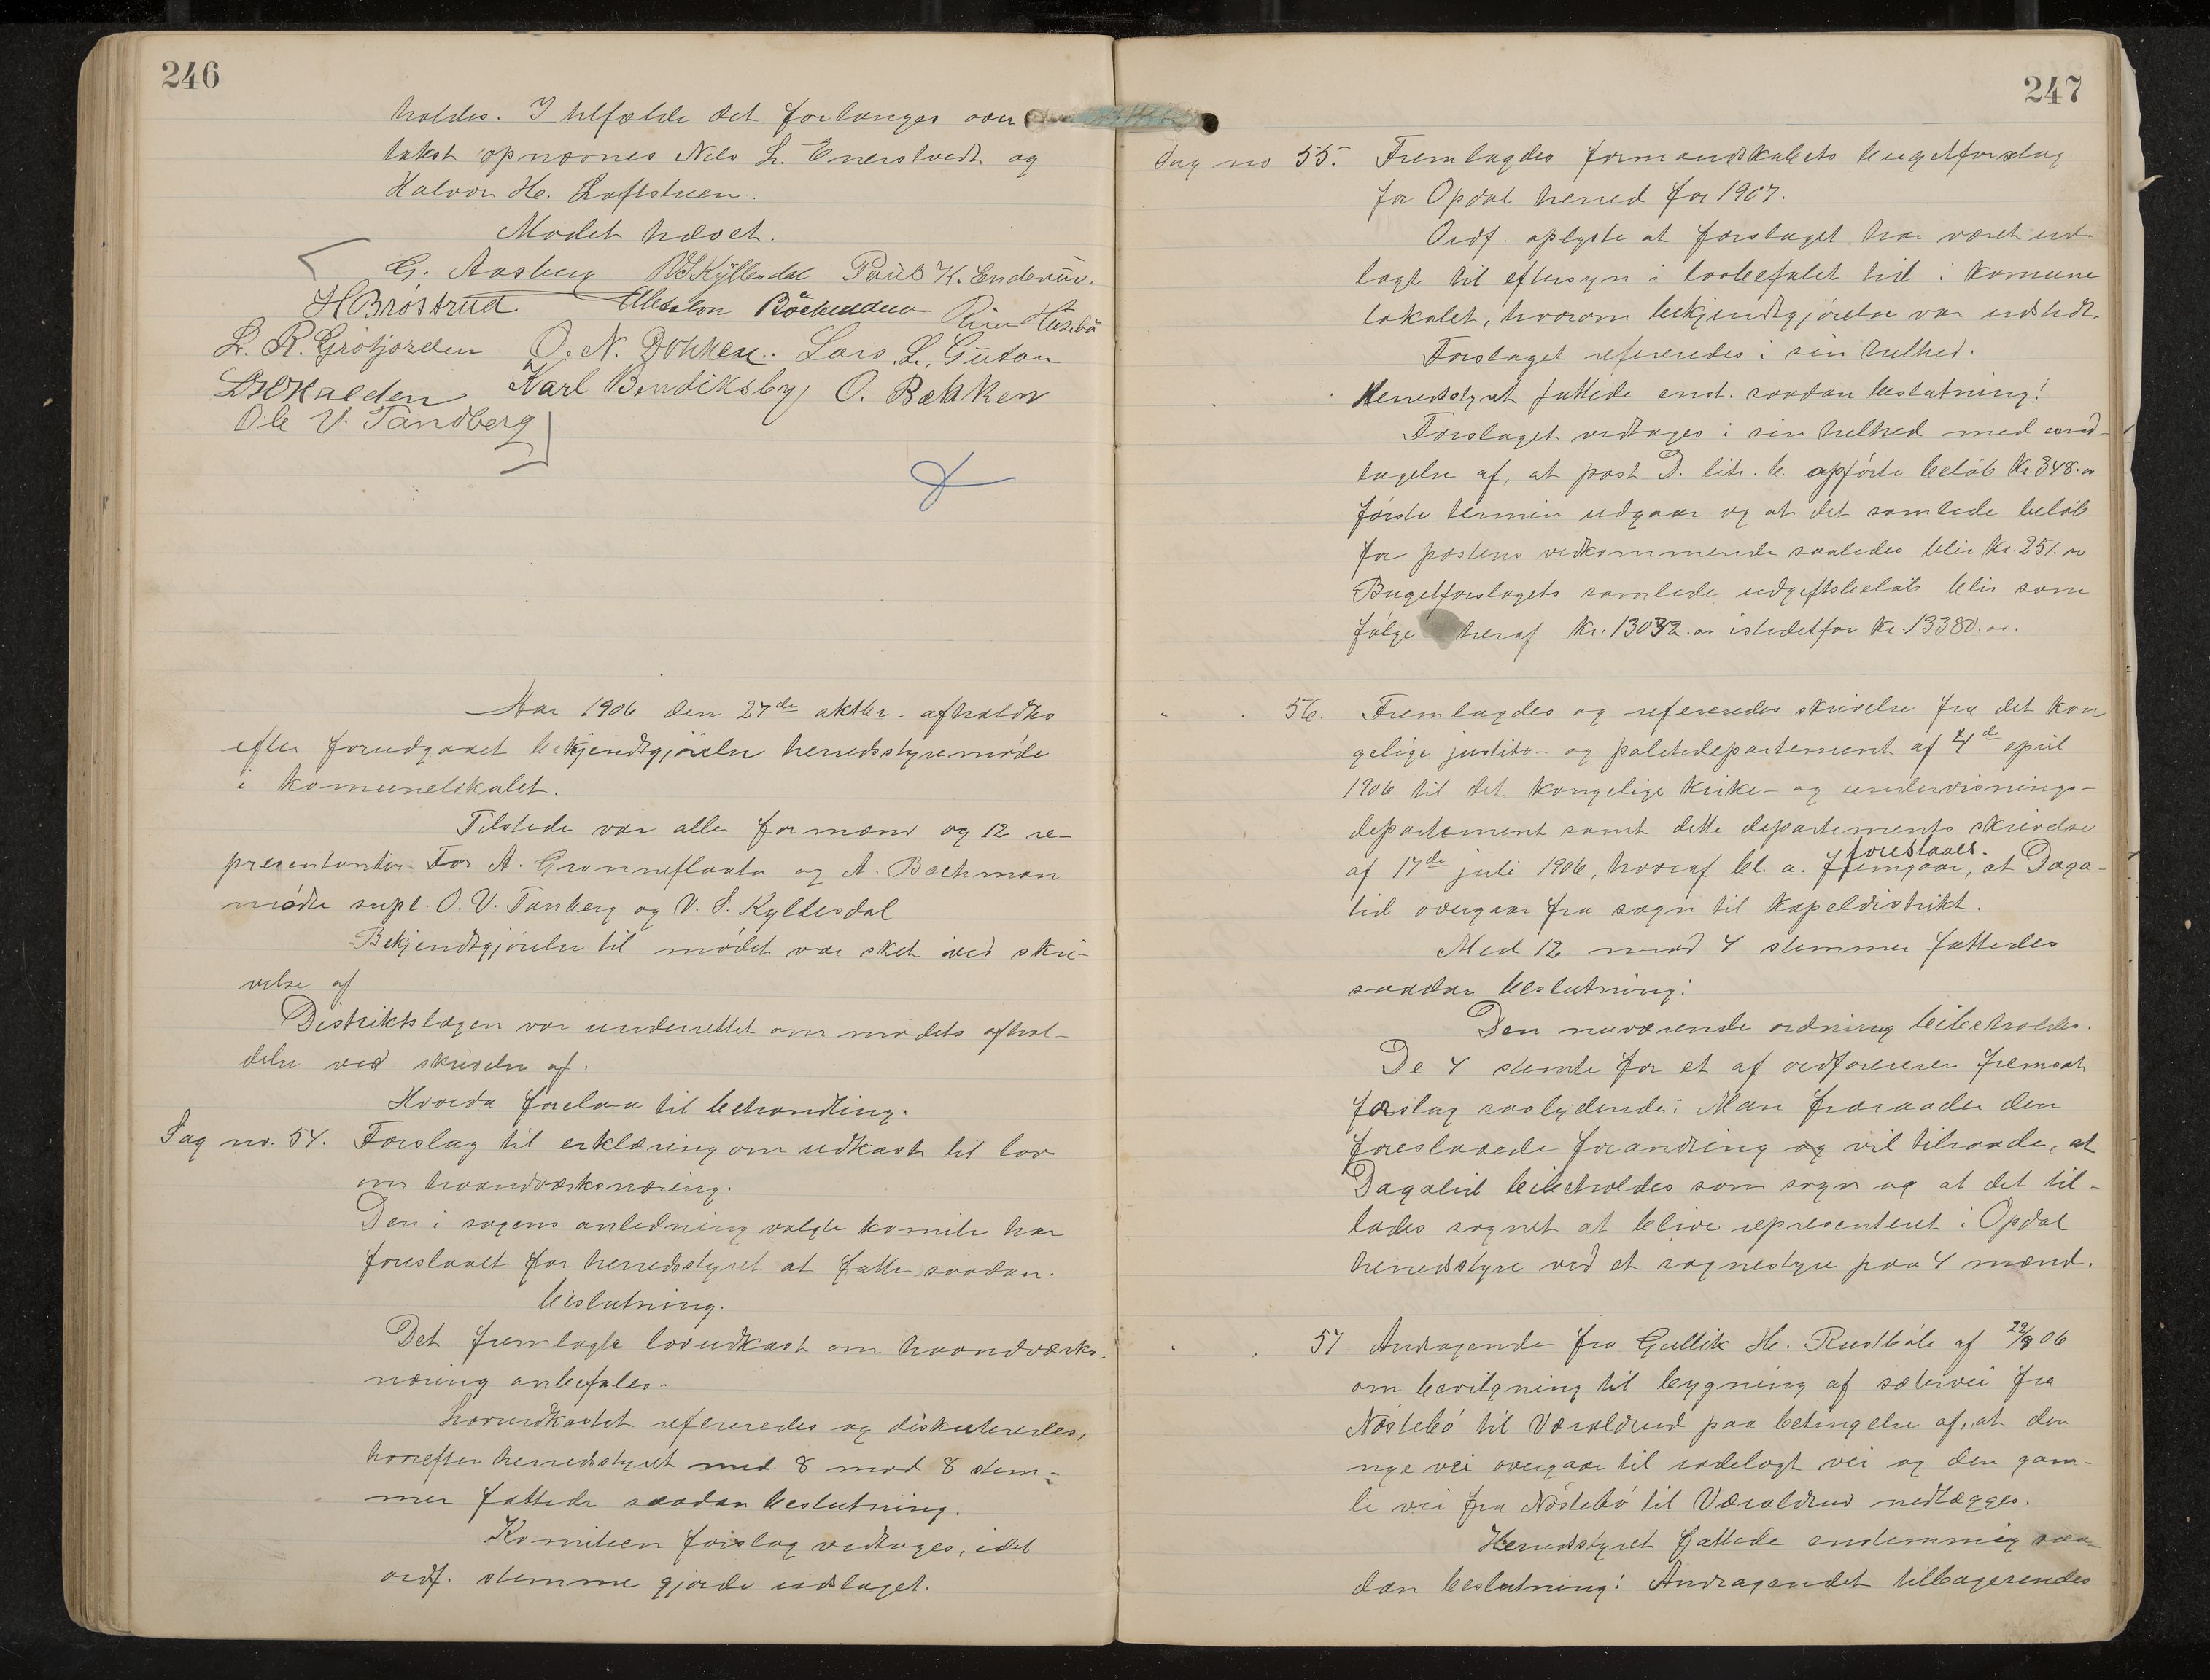 246
holdes. I tilfælde det forlanges over
takst opnævnes Nils L. Enerstvedt og
Halvor H. Loftstuen.
Mødet hævet.
G. Aasberg VSKyllesdal Paul K. Enderud.
HBrøstrud Abesalon
L. R. Grøtjorden O. N. Dokken. Lars L. Guton
Halden Karl Bendiksby, O. Bakken
Ole V. Tandberg
Aar 1906 den 27de oktbr. afholdtes
efter forudgaaet bekjendtgjørelse herredsstyremøde
i komunelokalet.
Tilstede var alle formænd og 12 re-
presentanter. For A. Grønneflaata og A. Bachman
mødte supl. O. V. Tanberg og V. S. Kyllesdal
Bekjendtgjørelse til mødet var sket ved skri-
velse af
Distriktslægen var underrettet om mødets afhol-
delse ved skrivelse af.
Hvorda forelaa til behandling.
Sag no. 54. Forslag til erklæring om udkast til lov
om haandværksnæring.
Den i sagens anledning valgte komite har
foreslaaet for herredsstyret at fatte saadan.
beslutning.
Det fremlagte lovudkast om haandværks-
næring anbefales.
Lovudkastet refereredes og diskuteredes,
hvorefter herredsstyret med 8 mod 8 stem-
mer fattede saadan beslutning.
Komiteen forslag vedtages, idet
ordf. stemme gjorde udslaget.
247
Sag no 55. Fremlagdes formandskabets bugetforslag
for Opdal herred for 1907.
Ordf. oplyste at forslaget har været ud-
lagt til eftersyn i lovbefalet tid i komune
lokalet, hvorom bekjendtgjørelse var udstedt.
Forslaget refereredes i sin helhed.
Herredsstyret fattede enst. saadan beslutning:
Forslaget vedtages i sin helhed med und-
tagelse af, at post D. litr. b. opførte beløb Kr. 348.00
første termin udgaar og at det samlede beløb
for postens vedkommende saaledes blir Kr. 251.00
Bugetforslagets samlede udgiftsbeløb blir som
følge heraf Kr. 13032.00 istedetfor Kr. 13380.00.
56. Fremlagdes og refereredes skrivelse fra det kon
gelige justits- og politidepartement af 4de april
1906 til det kongelige kirke- og undervisnings-
departement samt dette departements skrivelse
foreslaaes.
af 17de juli 1906, hvoraf bl. a. fremgaar, at Daga-
lid overgaar fra sogn til kapeldistrikt.
Med 12 mod 4 stemmer fattedes
saadan beslutning:
Den nuværende ordning bibeholdes.
De 4 stemte for et af ordføreren fremsat
forslag saalydende: Man fraraader den
foreslaaede forandring og vil tilraade, at
Dagalid bibeholdes som sogn og at det til-
lades sognet at blive representeret i Opdal
herredsstyre ved et sognestyre paa 4 mænd.
57. Andragende fra Gullik H. Rustbøle af 22/9 06
om bevilgning til bygning af sætervei fra
Nøstebø til Væraldrud paa betingelse af, at den
nye vei overgaar til rodelagt vei og den gam-
le vei fra Nøstebø til Væraldrud nedlægges.
Herredsstyret fattede enstemmig saa-
dan beslutning: Andragendet tilbagesendes